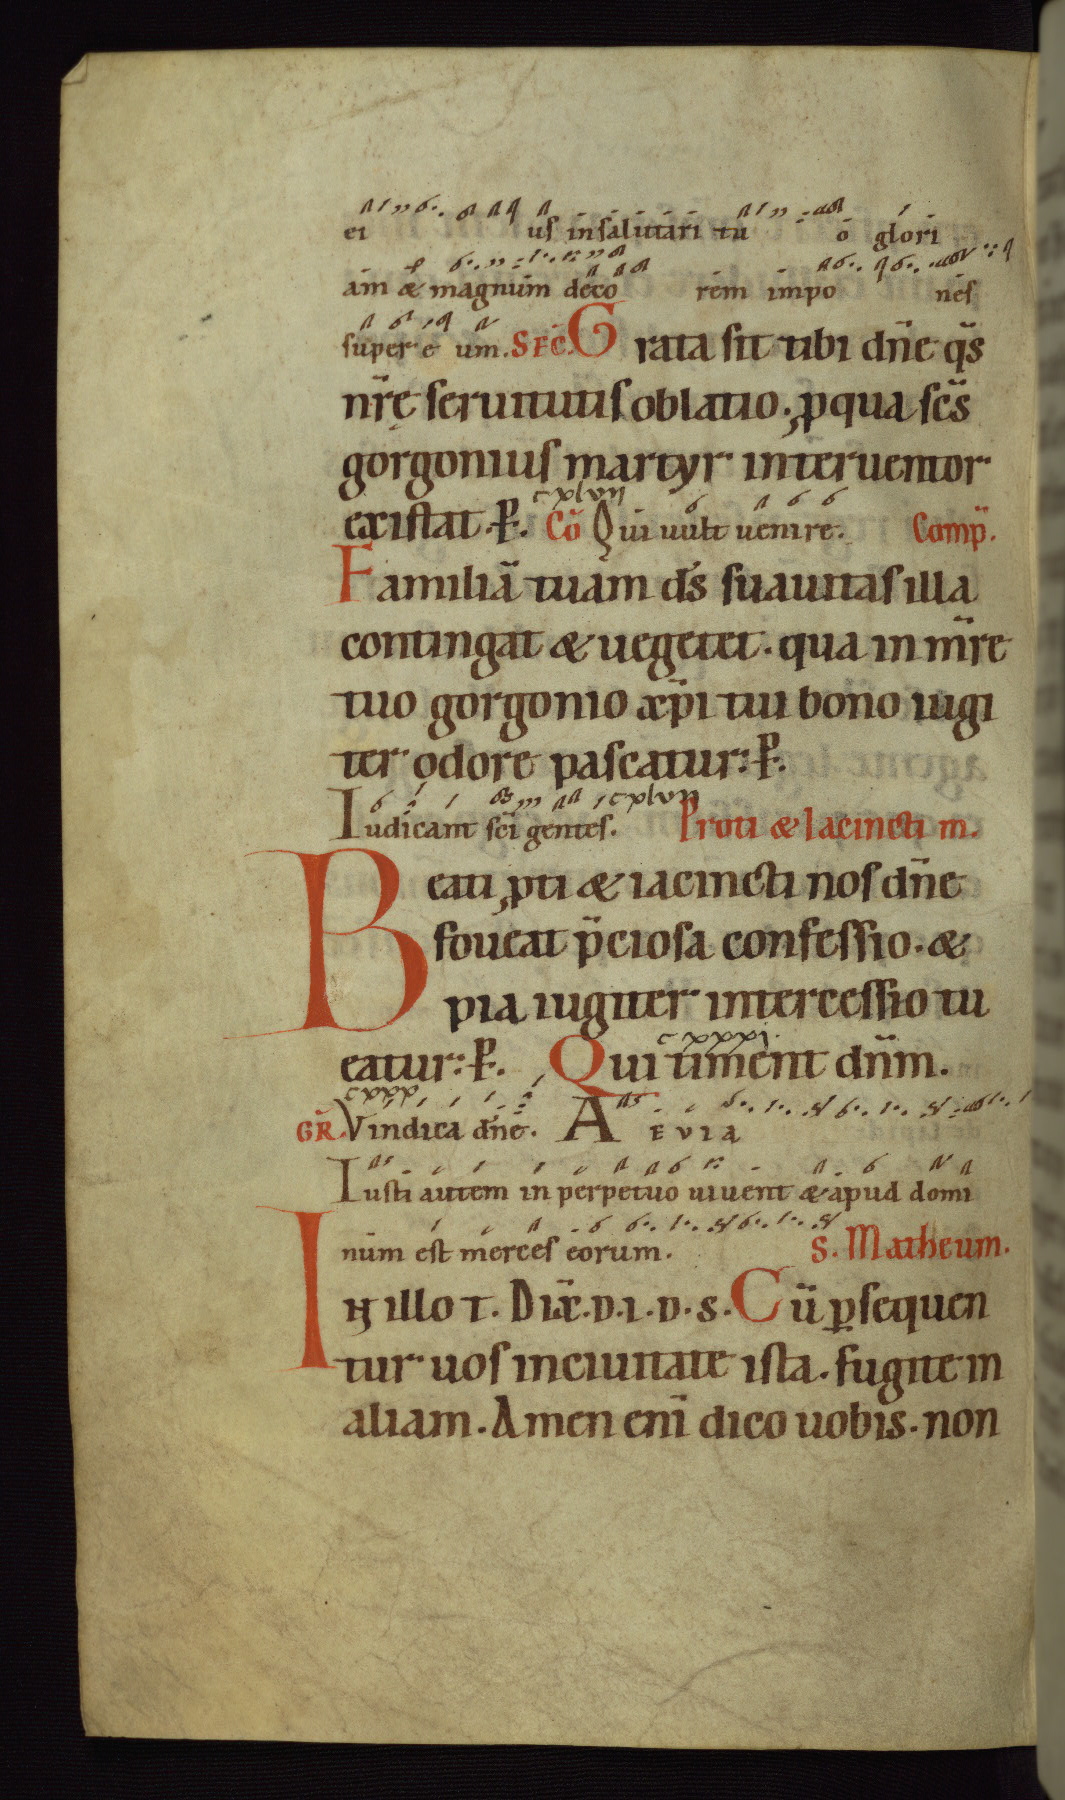 ei us in salutari tu o glori
am & magnum deco rem impo nes
super e um. SEC̄. Grata sit tibi dn̄e q̄s
nr̄ę seruitutis oblatio. ꝓ qua sc̄s
gorgonius martyr interuentor
cxlvii
existat. P. Cō Qui uult uenire. Comp̄.
Familiā tuam ds̄ suauitas illa
contingat & uegetet. qua in mr̄e
tuo gorgonio xp̄i tui bono iugi
ter odore pascatur: P.
cxlvii
Iudicant sc̄i gentes. Proti & Iacincti m.
Beati ꝓti & iacincti nos dn̄e
foueat p̄ciosa confessio. &
pia iugiter intercessio tu
cxxxi.
eatur: P. Qui timent dn̄m.
GR̄. Vindica dn̄e. A EVIA
Iusti autem in perpetuo uiuent & apud domi
num est merces eorum. S. Matheum.
IN illo T. Dix̄. D. I. D. S. Cū ꝑsequen
tur uos in ciuitate ista. fugite in
aliam. Amen enī dico uobis. non